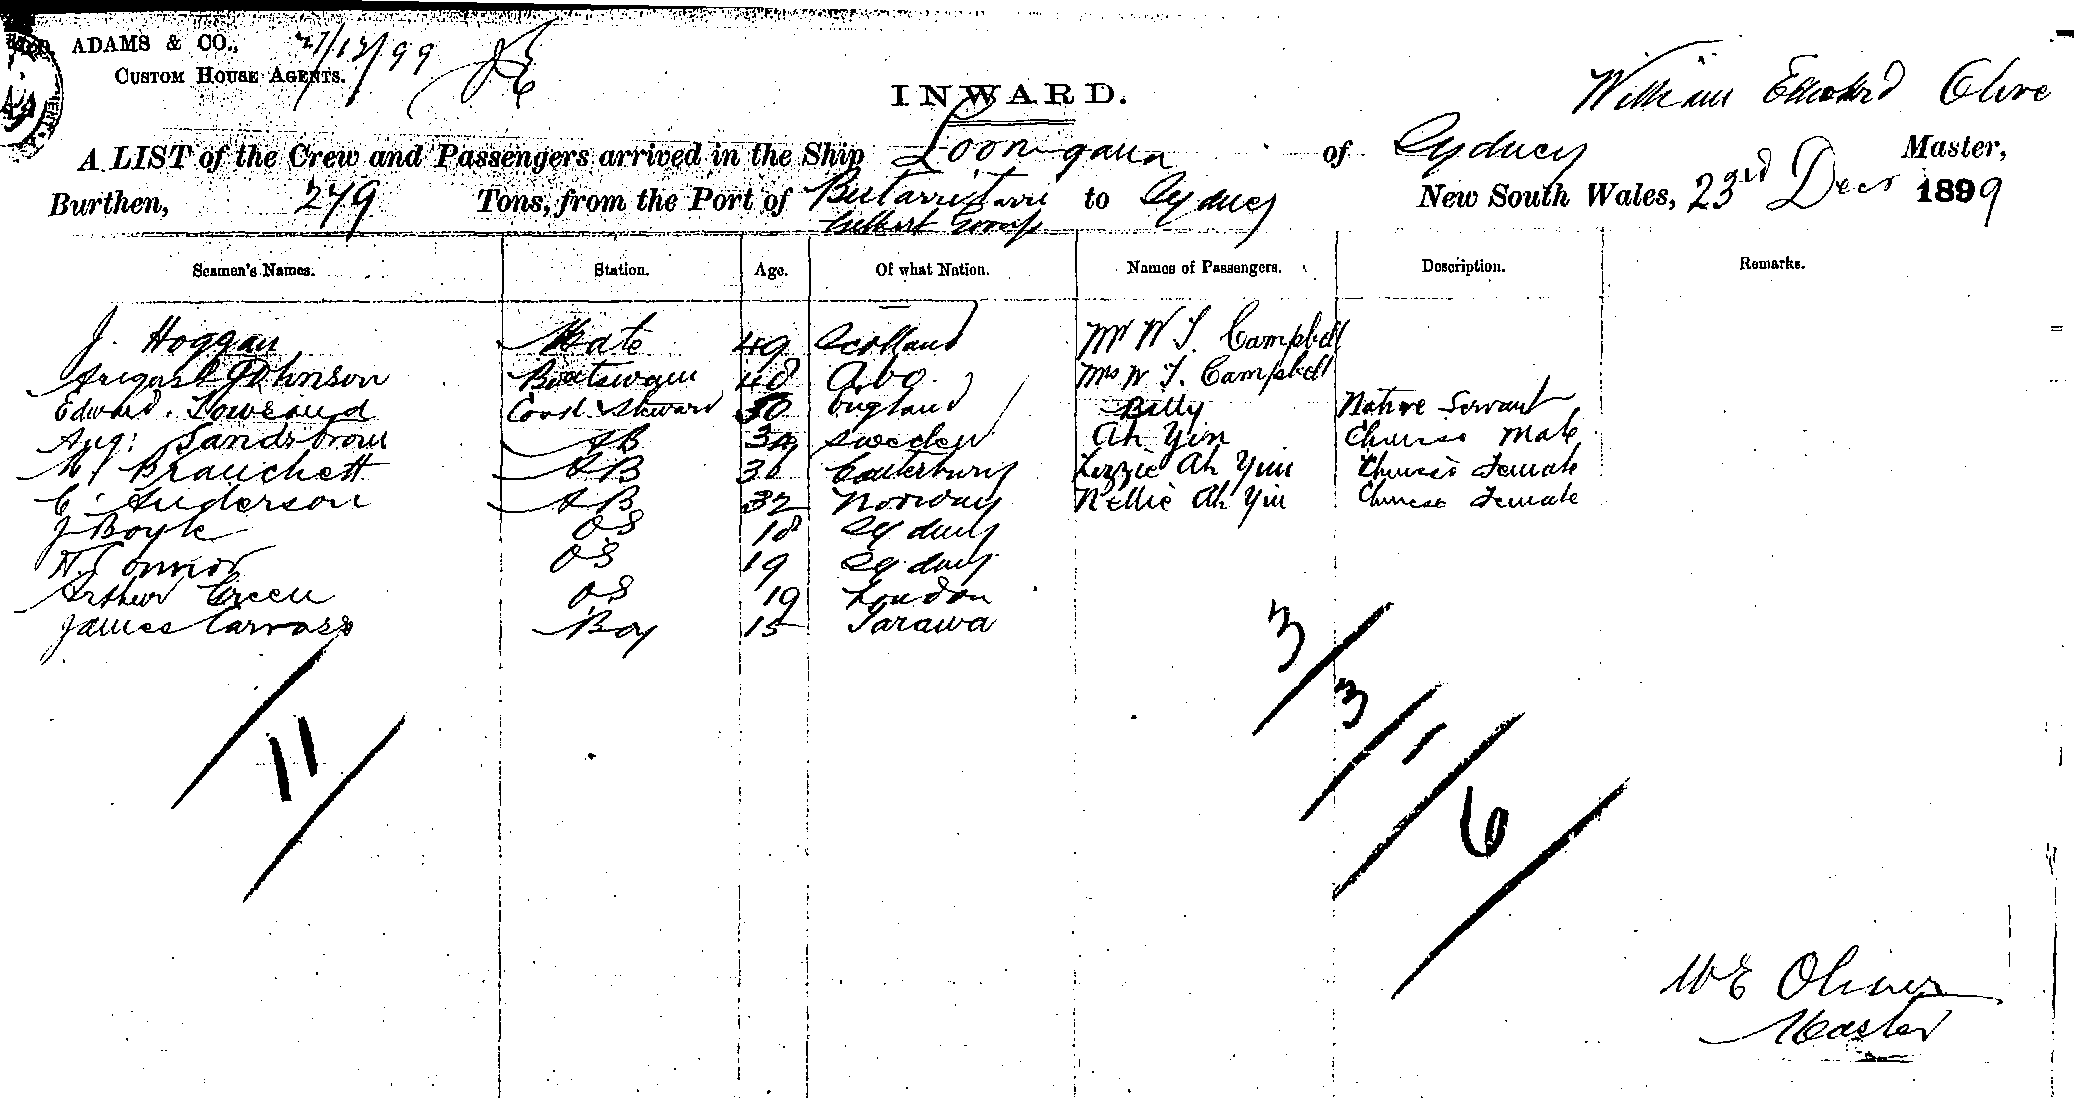 ADAMS & CO., 27/12/99
CUSTOM HOUSE AGENTS.
INWARD.
William Edward Olive
A LIST of the Crew and Passengers arrived in the Ship Loongana of Sydney Master,
Burthen, 249 Tons, from the Port of Butaritari to Sydney New South Wales, 23rd Decr 1899
Gilbert Group
Seamen's Names. Station. Age. Of what Nation. Names of Passengers. Description. Remarks.
J. Hoggan Mate 49 Scotland Mr W T. Campbell
August Johnson Boatswain 48 Abo Mrs W T. Campbell
Edward Cook & Steward 50 England Billy Native Servant
Aug: Sandstrom AB 34 Sweden Ah Yin Chinese Male
Brauchett AB 36 Canterbury Lizzie Ah Yin Chinese Female
C. Anderson AB 32 Norway Nellie Ah Yin Chinese Female
J Boyle OS 18 Sydney
Connor OS 19 Sydney
Arthur Green OS 19 London
James Boy 15 Tarawa
11
3/3/1/6
W E Oliver
Master